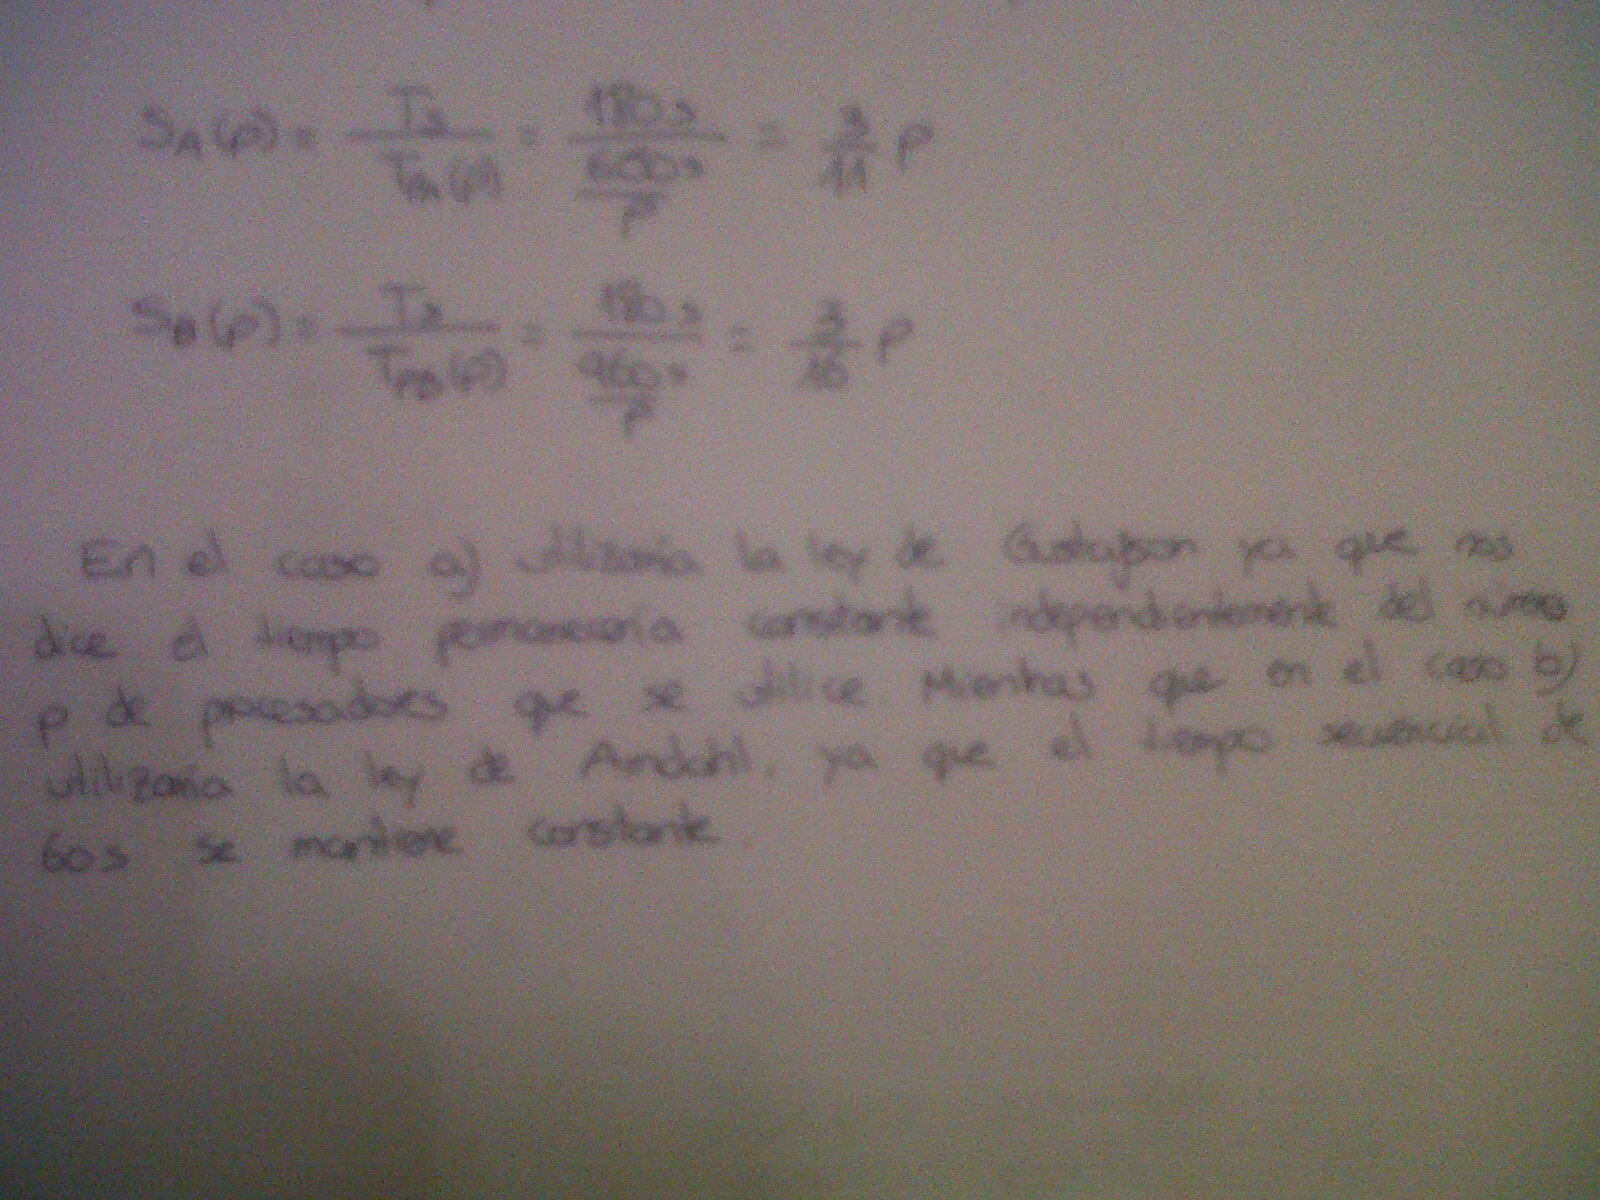 S_A(p) = T_s / T_PA(p) = 180 s / (660 s / p) = 3/11 p
S_B(p) = T_s / T_PB(p) = 180 s / (960 s / p) = 3/16 p
En el caso a) utilizaría la ley de Gustafson ya que nos
dice el tiempo permanecería constante independientemente del número
p de procesadores que se utilice. Mientras que en el caso b)
utilizaría la ley de Amdahl, ya que el tiempo secuencial de
60s se mantiene constante.